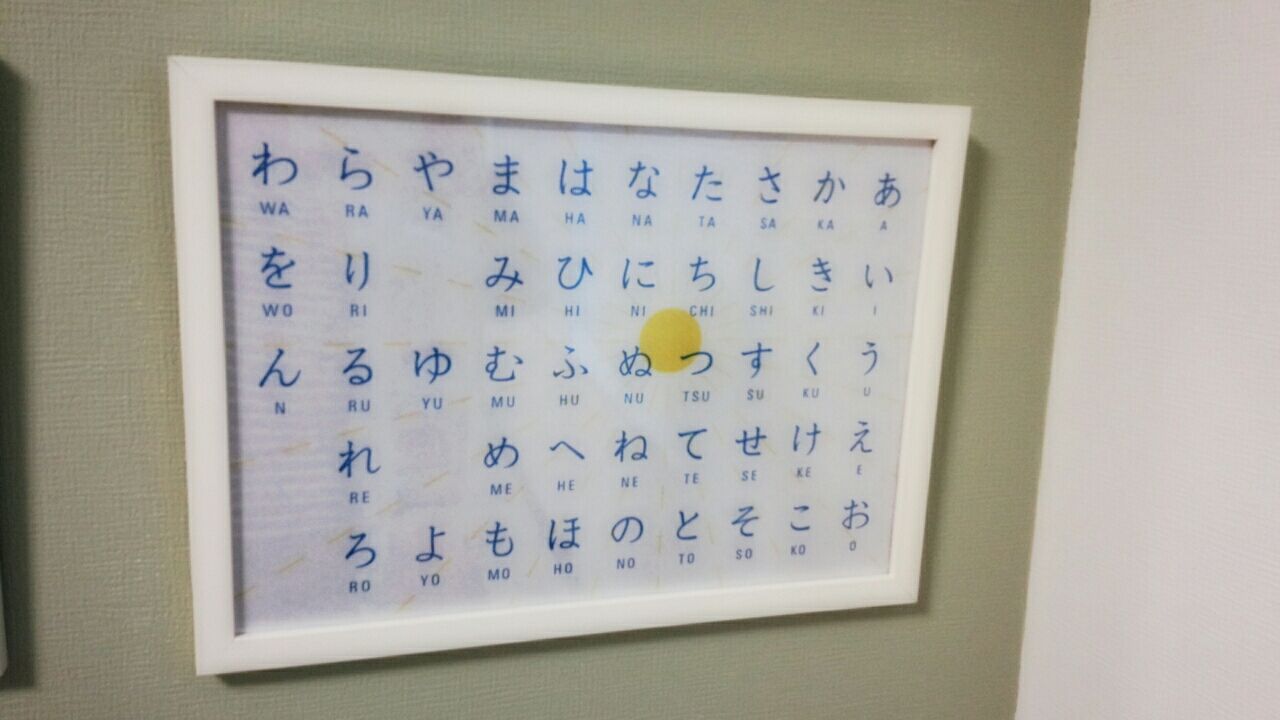 わ ら や ま は な た さ か あ
WA RA YA MA HA NA TA SA KA A
を り み ひ に ち し き い
WO RI MI HI NI CHI SHI KI I
ん る ゆ む ふ ぬ つ す く う
N RU YU MU HU NU TSU SU KU U
れ め へ ね て せ け え
RE ME HE NE TE SE KE E
ろ よ も ほ の と そ こ お
RO YO MO HO NO TO SO KO O